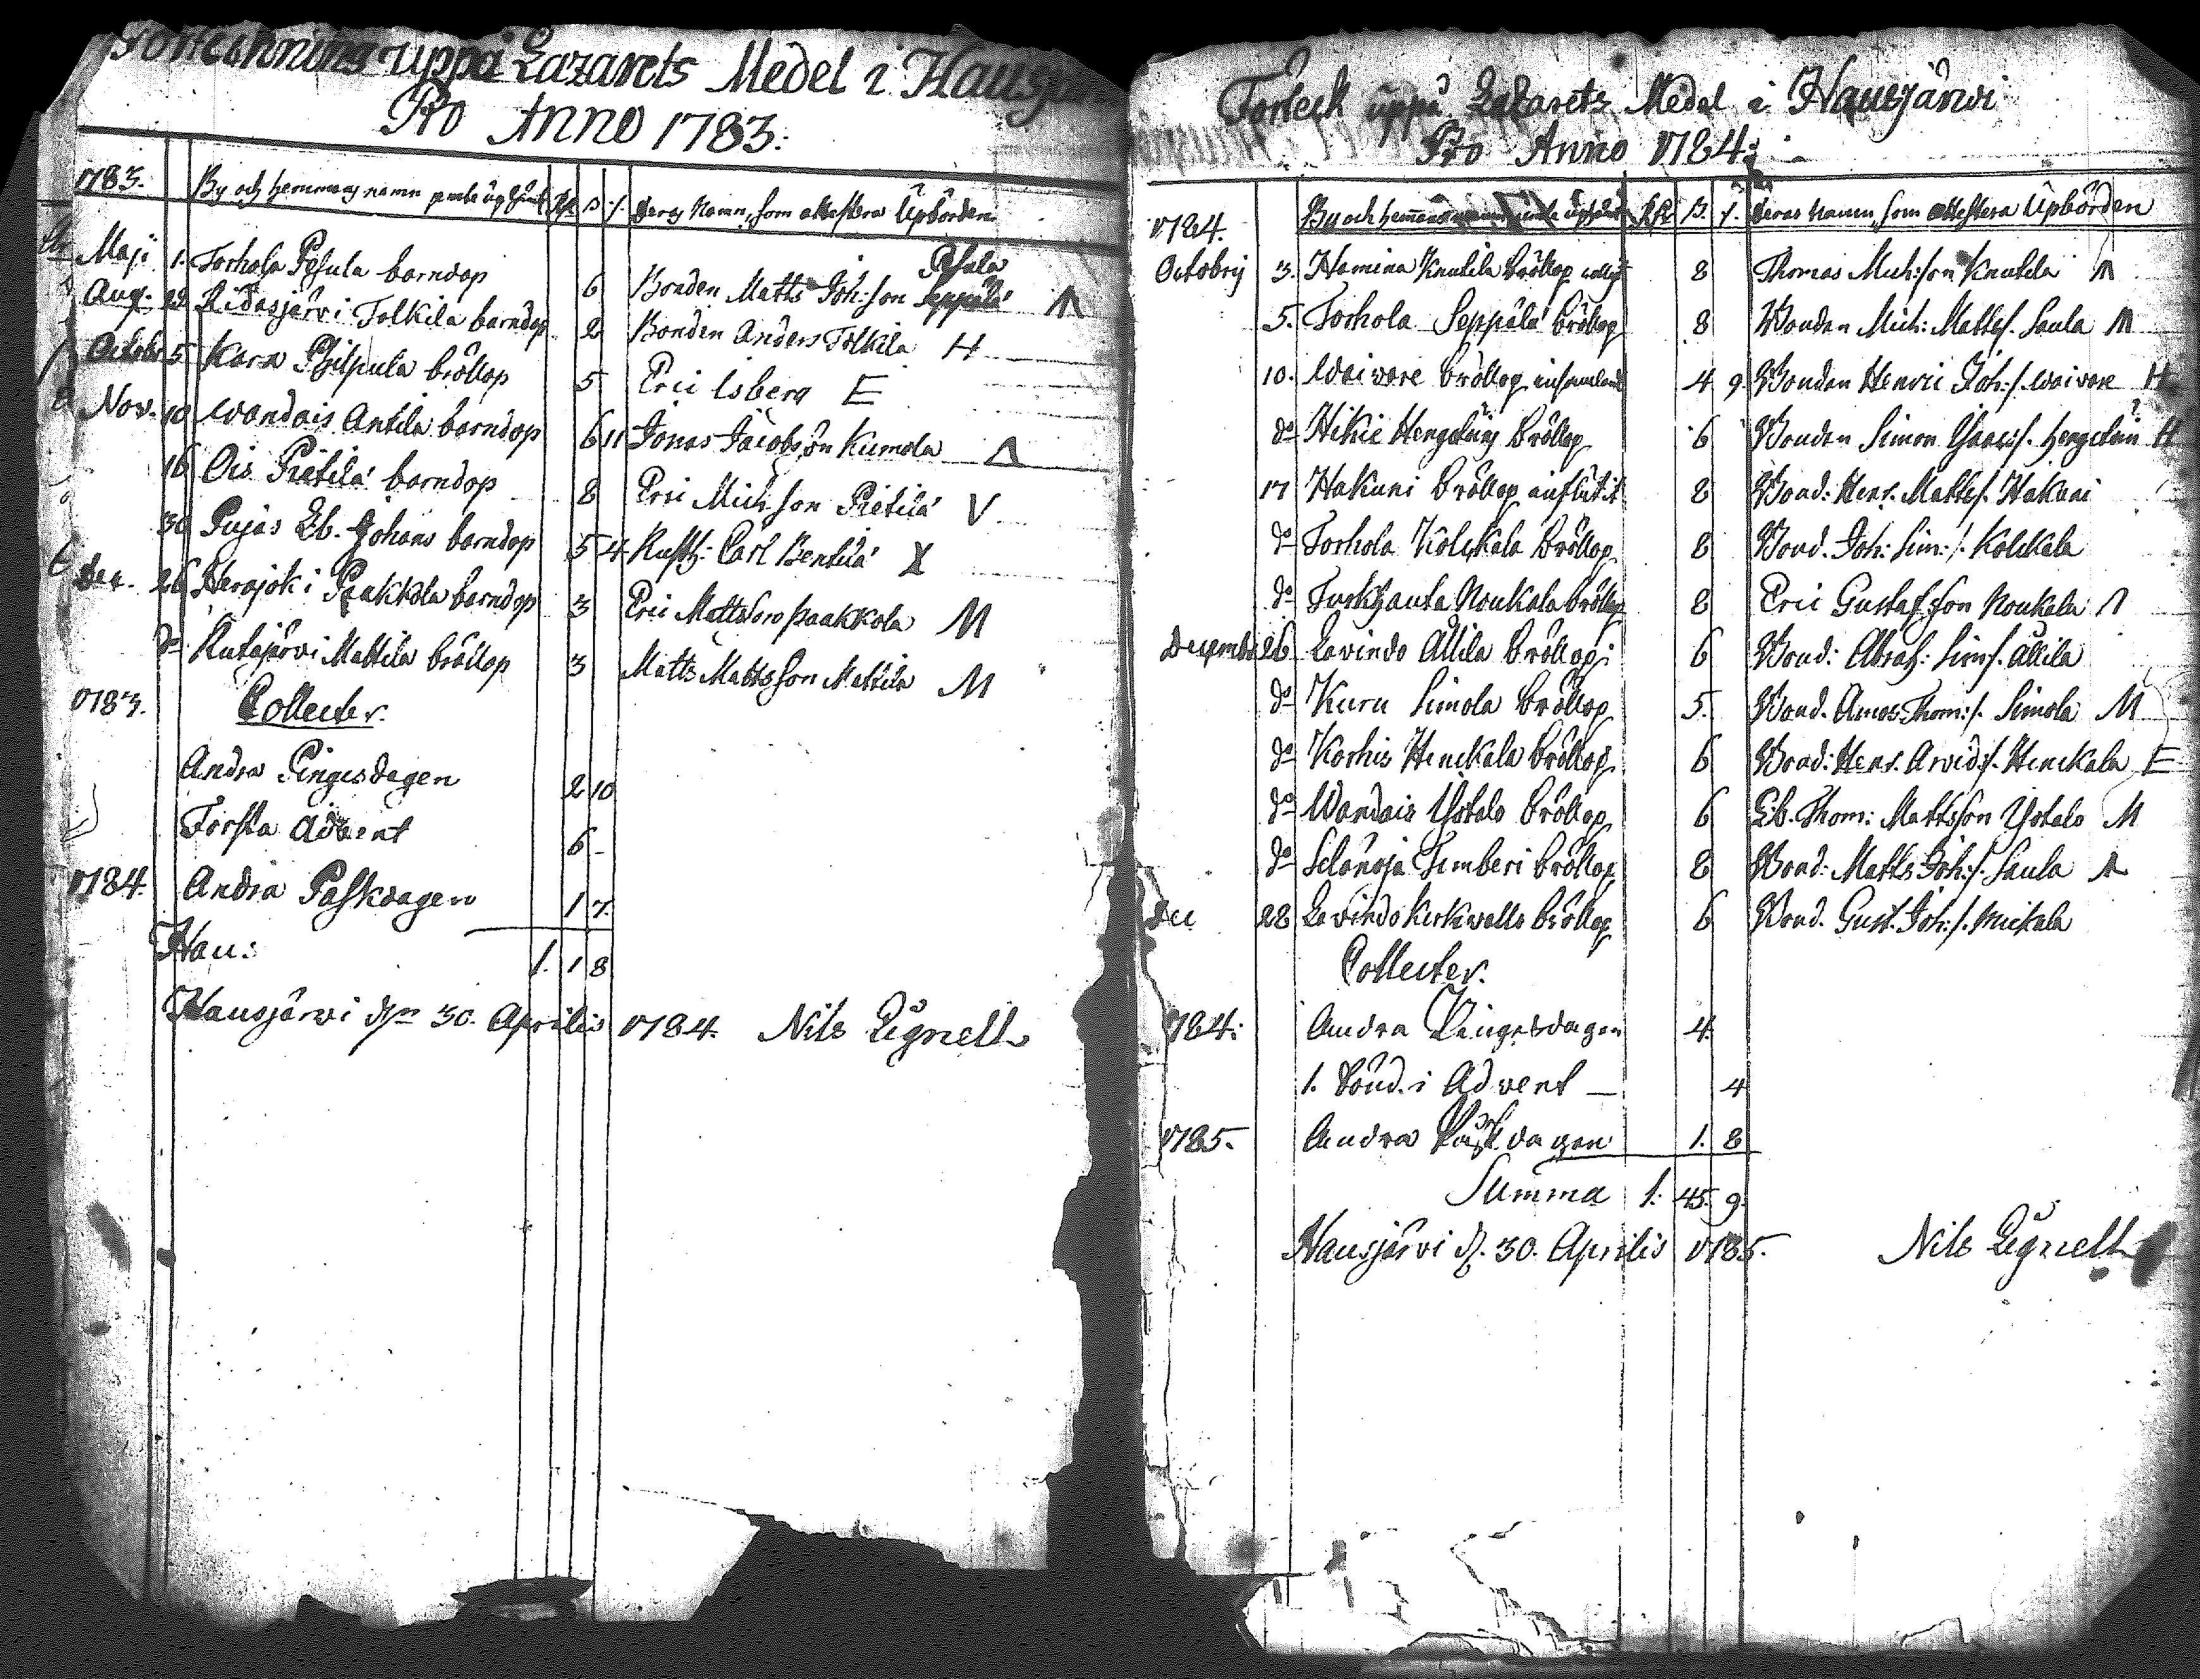 Förteckning uppå Lazarets Medel i Hausjärvi
Pro Anno 1783.
1783. By och hemmans namn Rd ß /. deras Namn, som attestera Upbörden
Maji 1. Torhola Pesula barndop 6 Bonden Matts Joh:son Seppälä Pesula
Aug. 22 Ridasjärvi Tolkila barndop 2 Bonden Anders Tolkila H
Octobr 5 Kara Philpula bröllop 5 Eric Isberg E
Nov. 10 Wandais Antila barndop 6 11 Jonas Jacobsson Kumola
16 Ois Pietilä barndop 8 Eric Mich:son Pietilä V
30 Pujas Lb. Johans barndop 5 4 Rusth: Carl Bentilä X
Dec. 26 Herajoki Paakkola barndop 3 Eric Mattsson Paakkola M
do Rutajärvi Mattila bröllop 3 Matts Mattsson Mattila M
1783. Collecter.
Andra Pingesdagen 2 10
Första Advent 6 -
1784. Andra Paskdagen 1 7.
Hau: 1. 1 8
Hausjärvi den 30. Aprilis 1784. Nils Lignell
Förteck uppå Lazarets Medel i Hausjärwi
Pro Anno 1784:
1784. By och hemmans Rd ß. /. deras namn, som attestera Upbörden
Octobrij 3. Hamina Knutila bröllop 8 Thomas Mich:son Knutila
5. Torhola Seppälä bröllop 8 Bonden Mich: Matts/. Saula M
10. Waiware bröllop 4 9. Bonden Henric Joh:/. Waiware H
do Hikie Hengelüis bröllop 6 Bonden Simon Hengelüis H
17 Hakuni bröllop 8 Bond: Henr. Matts/. Hakuni
do Torhola Kölckälä bröllop 8 Bond. Joh: Sim:/. Kölckälä
do Turkhauta Noukala bröllop 8 Eric Gustafsson Noukala
Decembr 26 Lavindo Ällilä bröllop: 6 Bond: Abrah: Sim/. Ällilä
do Kuru Simola bröllop 5. Bond. Thom:/. Simola M
do Karhis Henckala bröllop 6 Bond: Henr. Arvid:/. Henckala E
do Wandais Ystalo bröllop 6 Lb. Thom: Mattsson Ystalo M
do Selänoja Timberi bröllop 8 Bond: Matts Joh:/. Saula
Dec 28 Lavindo Kirkwalls bröllop 6 Bond. Gust. Joh:/. Mickala
Collecter.
1784: Andra Pingesdagen 4.
1. Sönd. i Advent — 4
1785. Andra Påskdagen 1. 8
Summa 1: 45. 9.
Hausjärvi d. 30. Aprilis 1785. Nils Lignell